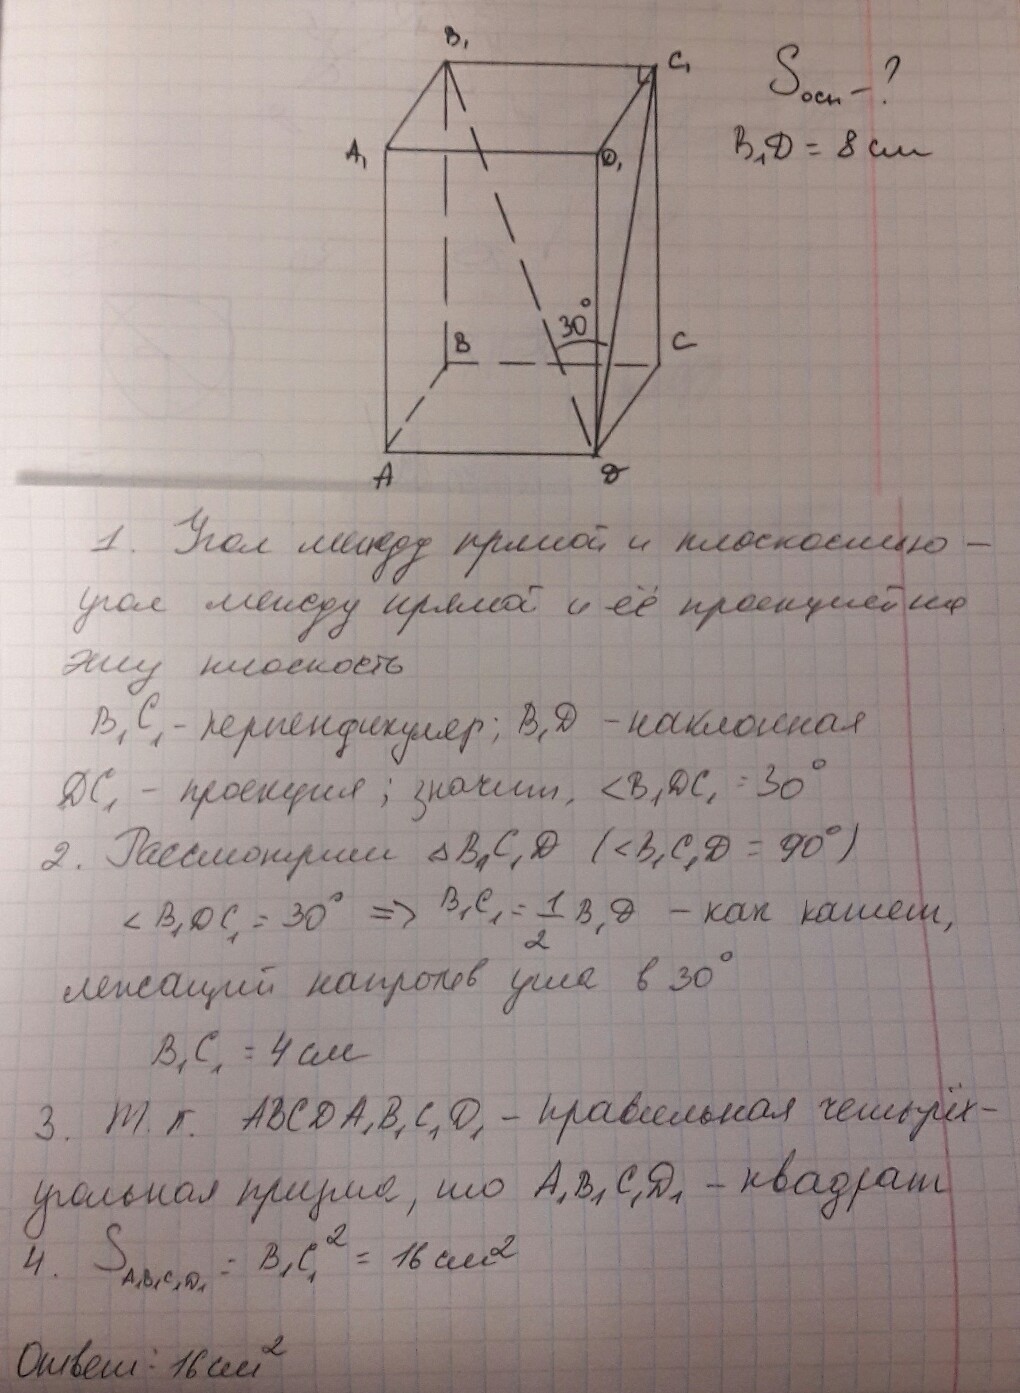 B₁
C₁
Sосн - ?
B₁D = 8 см
A₁
D₁
30°
B
C
A
D
1. Угол между прямой и плоскостью –
угол между прямой и её проекцией на
эту плоскость
B₁C₁ - перпендикуляр; B₁D - наклонная
DC₁ - проекция; значит, <B₁DC₁ = 30°
2. Рассмотрим △B₁C₁D (<B₁C₁D = 90°)
<B₁DC₁ = 30° => B₁C₁ = 1/2 B₁D - как катет,
лежащий напротив угла в 30°
B₁C₁ = 4 см
3. Т. к. ABCDA₁B₁C₁D₁ - правильная четырёх-
угольная призма, то A₁B₁C₁D₁ - квадрат
4. SA₁B₁C₁D₁ = B₁C₁² = 16 см²
Ответ: 16 см²